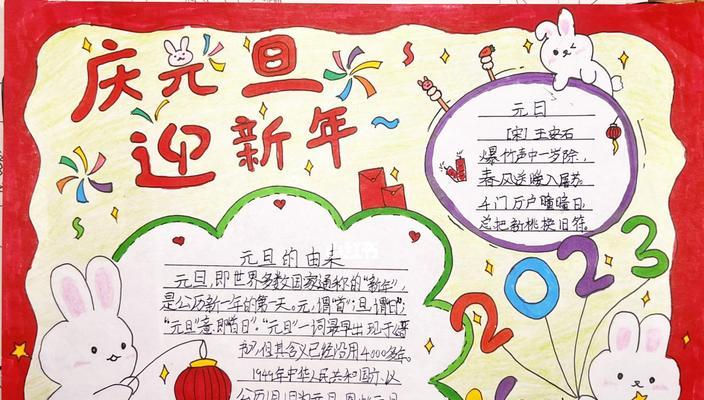 庆元旦
迎新年
元日
[宋]王安石
爆竹声中一岁除,
春风送暖入屠苏.
千门万户曈曈日,
总把新桃换旧符.
2023
元旦的由来
元旦,即世界多数国家通称的"新年",
是公历新一年的第一天。元,谓"首";旦,谓"日";
"元旦"意即"首日"。"元旦"一词最早出现于《晋
书》,但其含义已经沿用4000多年。
1949年中华人民共和国亦以
公历1月1日为元旦